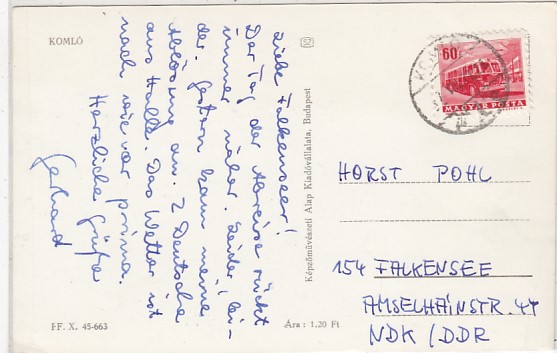 KOMLÓ
Liebe Falkenseer!
Der Tag der Abreise rückt
immer näher. Leider, lei-
der. Gestern kam meine
Ablösung an. 2 Deutsche
aus Halle. Das Wetter ist
nach wie vor prima.
Herzliche Grüße
Gerhard
I-F. X. 45-663
Ára : 1.20 Ft
Képzőművészeti Alap Kiadóvállalata, Budapest
60f
MAGYAR POSTA
KOMLÓ
HORST POHL
154 FALKENSEE
AMSELHAINSTR. 44
NDK / DDR